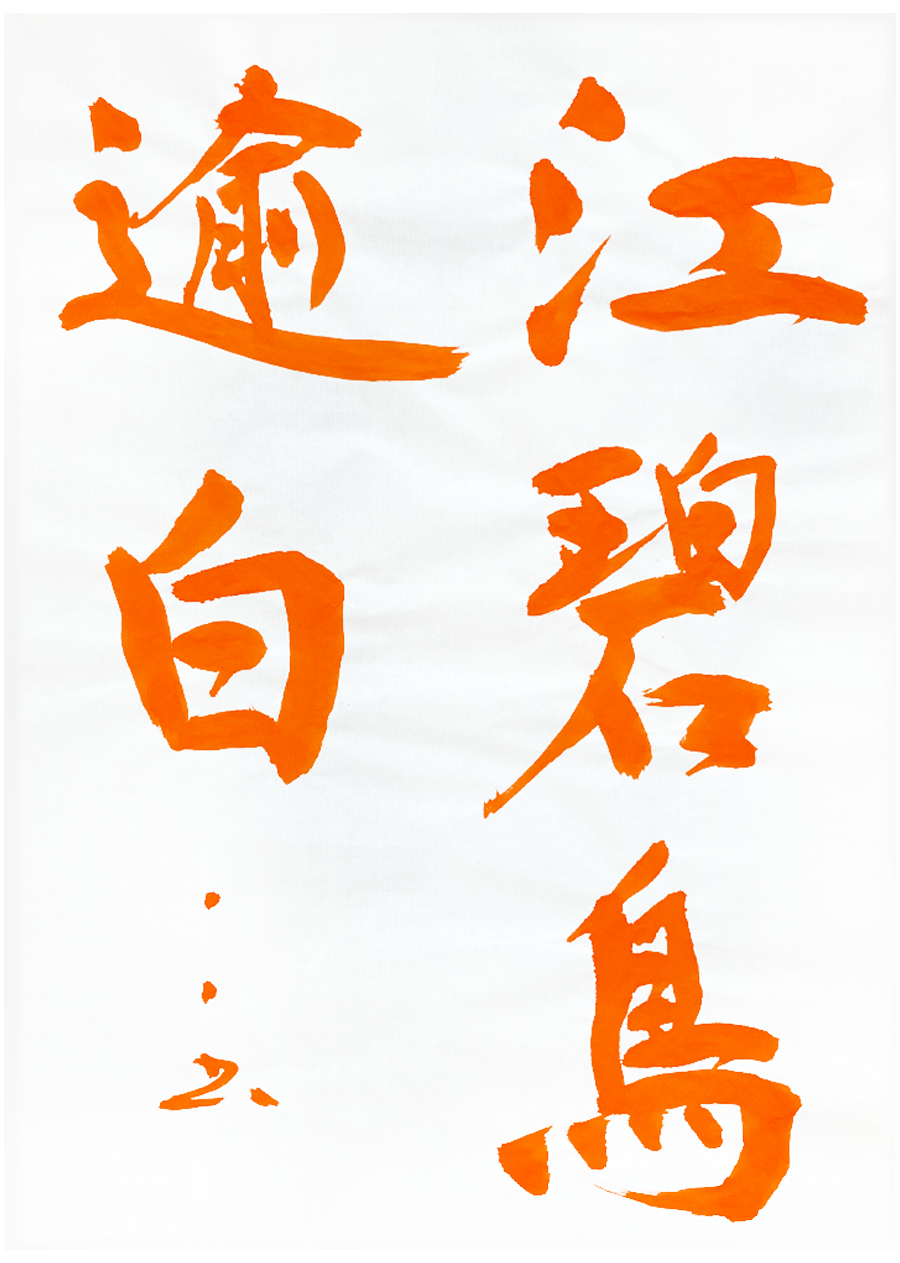 江碧鳥
逾白